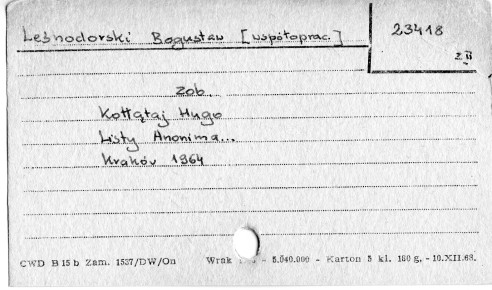 Leśnodorski Bogusław [współoprac.]
23418
z II
zob.
Kołłątaj Hugo
Listy Anonima...
Kraków 1964
CWD B 15 b Zam. 1537/DW/On Wrak - 5.040.000 - Karton 5 kl. 180 g. - 10.XII.68.